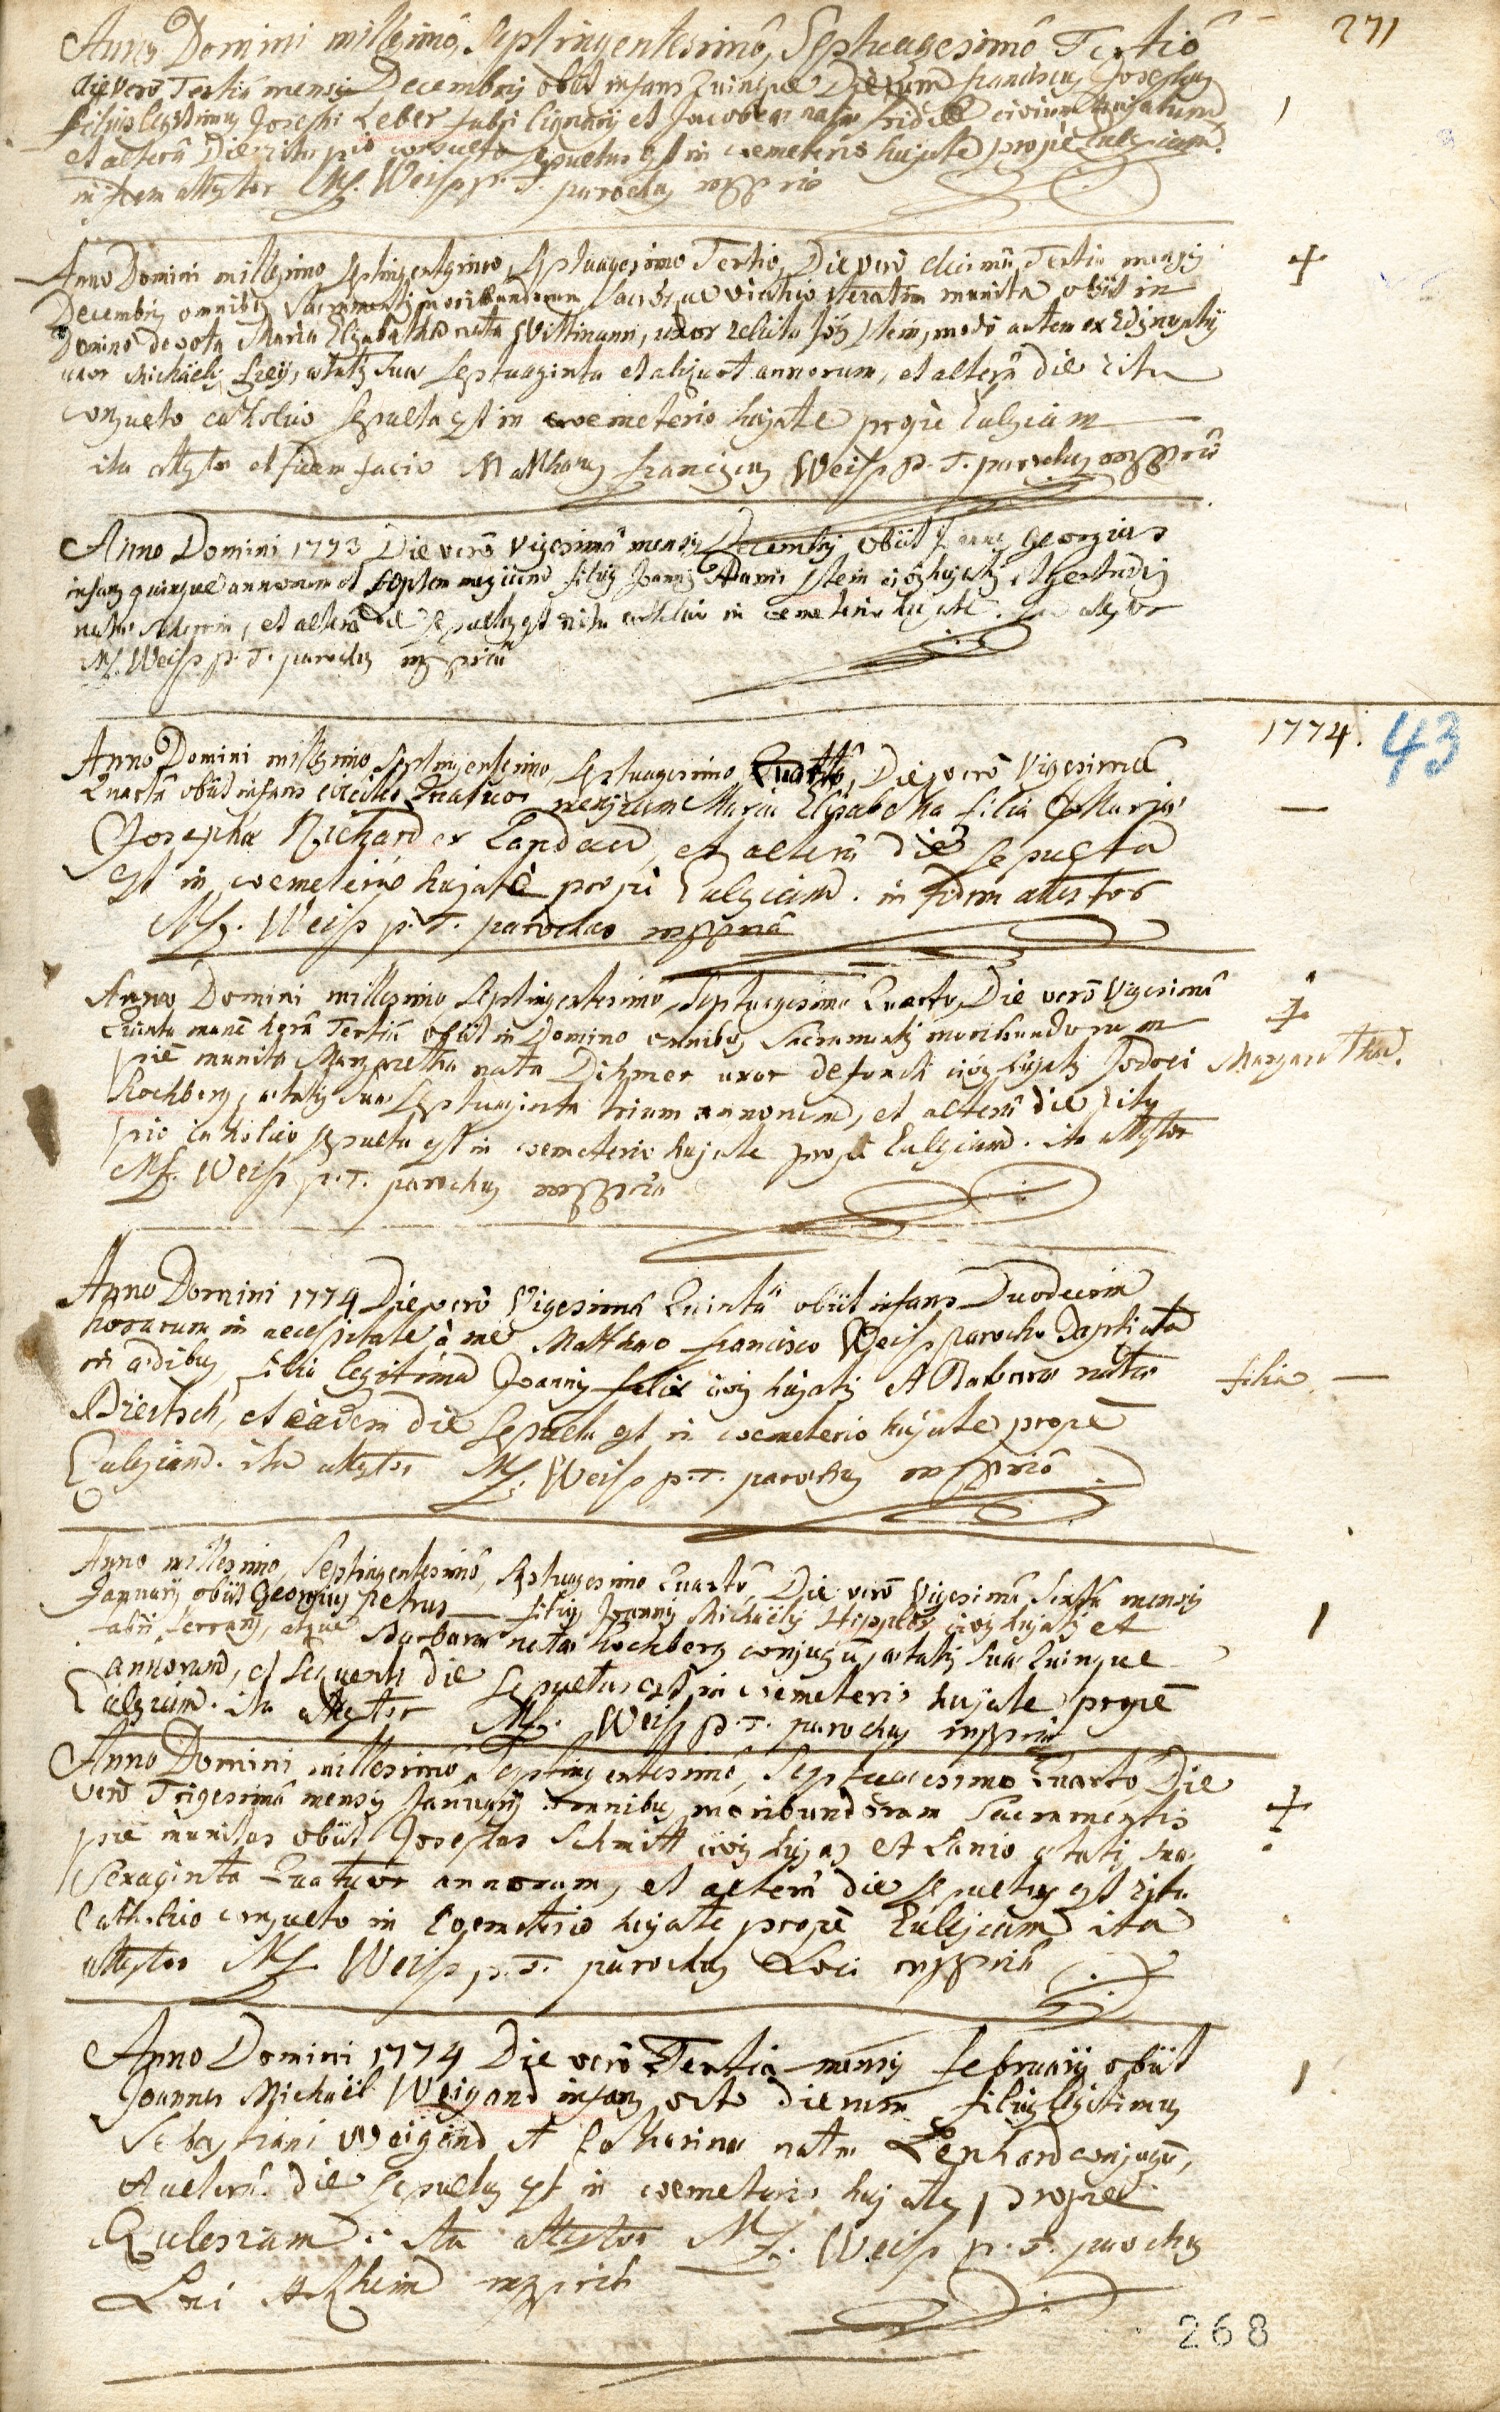 271
Anno Domini millesimo, Septingentesimo, Septuagesimo Tertio
die verò Tertia mensis Decembris obiit infans Quinque Dierum franciscus Josephus
filius legitimus Josephi Leber fabri lignarij et Jacobea nata civium hujatum
et altera Die ritu pio consueto sepultus est in coemeterio hujate propè Eulesiam.
in fidem attestor Mf. Weiss p. T. parochus mppria
Anno Domini millesimo Septingentesimo, Septuagesimo Tertio, Die verò decima Tertia mensis
Decembris omnibus Sacramentis moribundorum Sacroque viatico iteratim munita obiit in
Domino devota Maria Elisabetha nata Wittmann, uxor relicta Stein, modo autem ex
uxor Michaelis Frey, aetatis suae Septuaginta et aliquot annorum, et altera die ritu
consueto catholico sepulta est in coemeterio hujate propè Eulesiam
ita attestor et fidem facio Matthaeus franciscus Weiss p. T. parochus mppriâ
Anno Domini 1773 Die verò Vigesima mensis Decembris obiit Joannes georgius
infans quinque annorum et septem mensium filius Joannis Adami Stein civis hujatis et Gertrudis
natae, et altera die sepultus est ritu catholico in coemeterio hujate. ita attestor
Mf. Weiss p. T. parochus mppria
1774. 43
Anno Domini millesimo Septingentesimo, Septuagesimo Quarto, Die verò Vigesima
Quarta obiit infans circiter Quatuor mensium Maria Elisabetha filia Maria
Josepha Richard ex Landau, et altera die sepulta
est in coemeterio hujate propè Eulesiam. in fidem attestor
Mf. Weiss p. T. parochus mppria
Anno Domini millesimo, Septingentesimo, Septuagesimo Quarto, Die verò Vigesima
Quinta manè hora Tertia obiit in Domino omnibus Sacramentis moribundorum
piè munita Margaretha nata Dihmer uxor defuncti civis hujatis Jodoci Margaretha.
Kochberg, aetatis suae Septuaginta trium annorum, et altera die ritu
pio catholico sepulta est in coemeterio hujate propè Eulesiam. ita attestor
Mf. Weiss p. T. parochus mppria
Anno Domini 1774 Die verò Vigesima Quinta obiit infans Duodecim
horarum in necessitate à me Matthaeo francisco Weiss parocho baptizata
in aedibus, filia legitima Joannis felix civis hujatis et Barbara natae filia
Biertsch, et eadem die sepulta est in coemeterio hujate propè
Eulesiam. ita attestor Mf. Weiss p. T. parochus mppria
Anno millesimo, Septingentesimo, Septuagesimo Quarto, Die verò Vigesima Sexta mensis
Januarij obiit Georgius Petrus filius Joannis Michaëlis Hippler civis hujatis et
fabri ferrarij, atque Barbara nata Kochberg conjugum, aetatis suae Quinque
annorum, et sequenti die sepultus est in coemeterio hujate propè
Eulesiam. ita attestor Mf. Weiss p. T. parochus mppria
Anno Domini millesimo, Septingentesimo, Septuagesimo Quarto Die
verò Trigesima mensis Januarij omnibus moribundorum Sacramentis
piè munitus obiit Josephus Schmitt civis hujas et Lanio aetatis suae
Sexaginta Quatuor annorum, et altera die sepultus est ritu
Catholico consueto in Coemeterio hujate propè Eulesiam ita
attestor Mf Weiss p. T. parochus Loci mppria
Anno Domini 1774 Die verò Tertia mensis februarij obiit
Joannes Michaël Weigand infans octo dierum filius legitimus
Sebastiani Weigand et Catharina nata Lenhard conjugum,
et altera die sepultus est in coemeterio hujate propè
Eulesiam. ita attestor Mf. Weiss p. T. parochus
Loci mppria
268